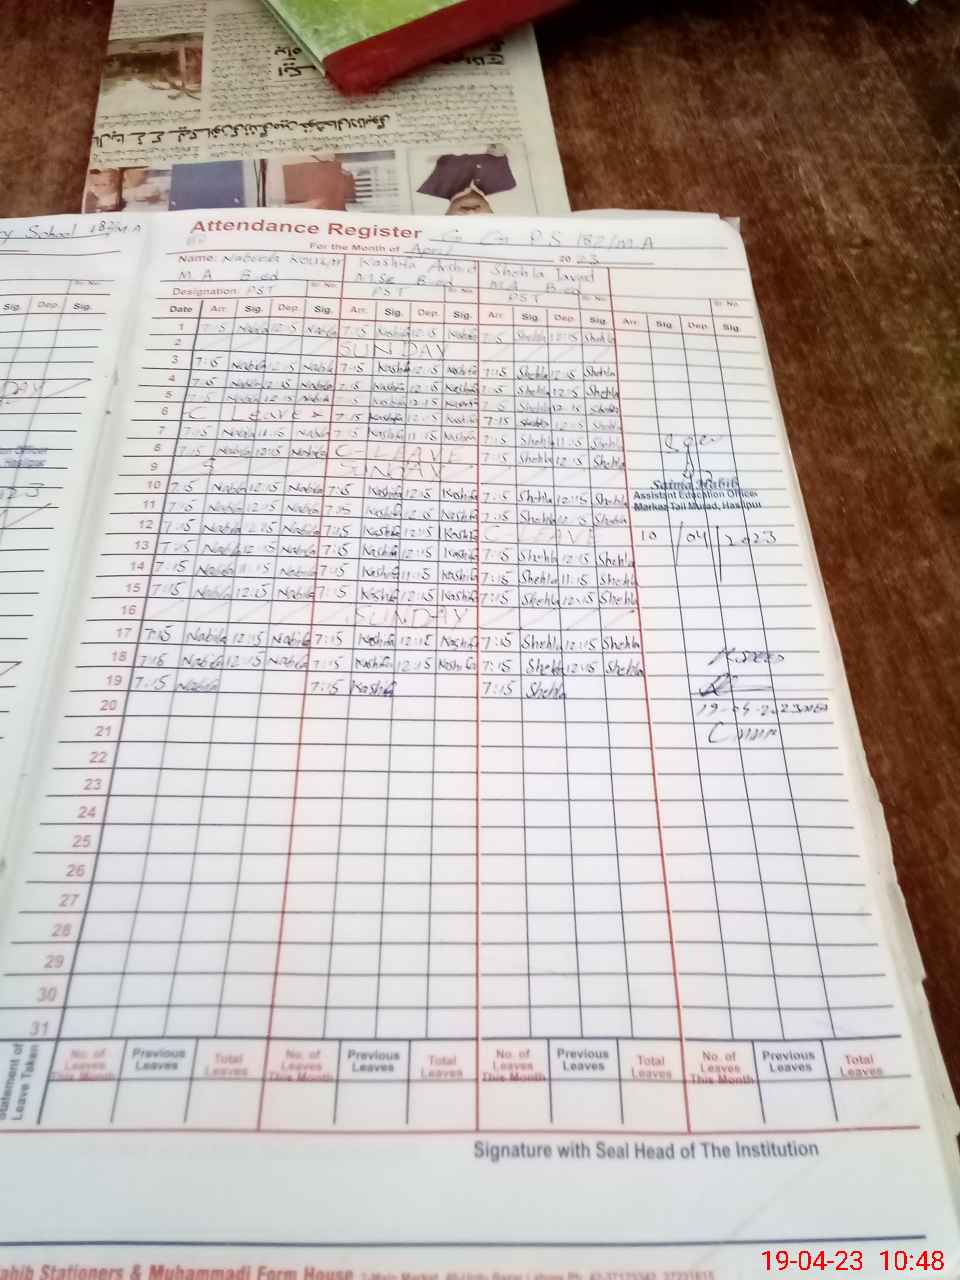 Attendance Register G G P S 182/M.A
For the Month of April 2023
y School 182/M A
Name: Nabeela Kousar Kashfa Arshid Shehla Javed
M A B.ed M.Sc B.ed M.A B.ed
Designation: PST PST PST
Sr. No.
Date Arr. Sig. Dep. Sig. Arr. Sig. Dep. Sig. Arr. Sig. Dep. Sig. Arr. Sig. Dep. Sig.
Sig. Dep. Sig.
1 7:15 Nabila 12:15 Nabila 7:15 Kashfa 12:15 Kashfa 7:15 Shehla 12:15 Shehla
2 SUNDAY
3 7:15 Nabila 12:15 Nabila 7:15 Kashfa 12:15 Kashfa 7:15 Shehla 12:15 Shehla
4 7:15 Nabila 12:15 Nabila 7:15 Kashfa 12:15 Kashfa 7:15 Shehla 12:15 Shehla
5 7:15 Nabila 12:15 Nabila 7:15 Kashfa 12:15 Kashfa 7:15 Shehla 12:15 Shehla
6 C LEAVE 7:15 Kashfa 12:15 Kashfa 7:15 Shehla 12:15 Shehla
7 7:15 Nabila 11:15 Nabila 7:15 Kashfa 11:15 Kashfa 7:15 Shehla 11:15 Shehla
8 7:15 Nabila 12:15 Nabila C-LEAVE 7:15 Shehla 12:15 Shehla
9 S SUNDAY
10 7:15 Nabila 12:15 Nabila 7:15 Kashfa 12:15 Kashfa 7:15 Shehla 12:15 Shehla
11 7:15 Nabila 12:15 Nabila 7:15 Kashfa 12:15 Kashfa 7:15 Shehla 12:15 Shehla
12 7:15 Nabila 12:15 Nabila 7:15 Kashfa 12:15 Kashfa C LEAVE
13 7:15 Nabila 12:15 Nabila 7:15 Kashfa 12:15 Kashfa 7:15 Shehla 12:15 Shehla
14 7:15 Nabila 11:15 Nabila 7:15 Kashfa 11:15 Kashfa 7:15 Shehla 11:15 Shehla
15 7:15 Nabila 12:15 Nabila 7:15 Kashfa 12:15 Kashfa 7:15 Shehla 12:15 Shehla
16 SUNDAY
17 7:15 Nabila 12:15 Nabila 7:15 Kashfa 12:15 Kashfa 7:15 Shehla 12:15 Shehla
18 7:15 Nabila 12:15 Nabila 7:15 Kashfa 12:15 Kashfa 7:15 Shehla 12:15 Shehla
19 7:15 Nabila 7:15 Kashfa 7:15 Shehla
20
21
22
23
24
25
26
27
28
29
30
31
Saima Habib
Assistant Education Officer
Markaz Tail Murad, Hasilpur
10/04/2023
19-04-2023
Statement of Leave Taken
No. of Leaves This Month Previous Leaves Total Leaves No. of Leaves This Month Previous Leaves Total Leaves No. of Leaves This Month Previous Leaves Total Leaves No. of Leaves This Month Previous Leaves Total Leaves
Signature with Seal Head of The Institution
ahib Stationers & Muhammadi Form House
19-04-23 10:48